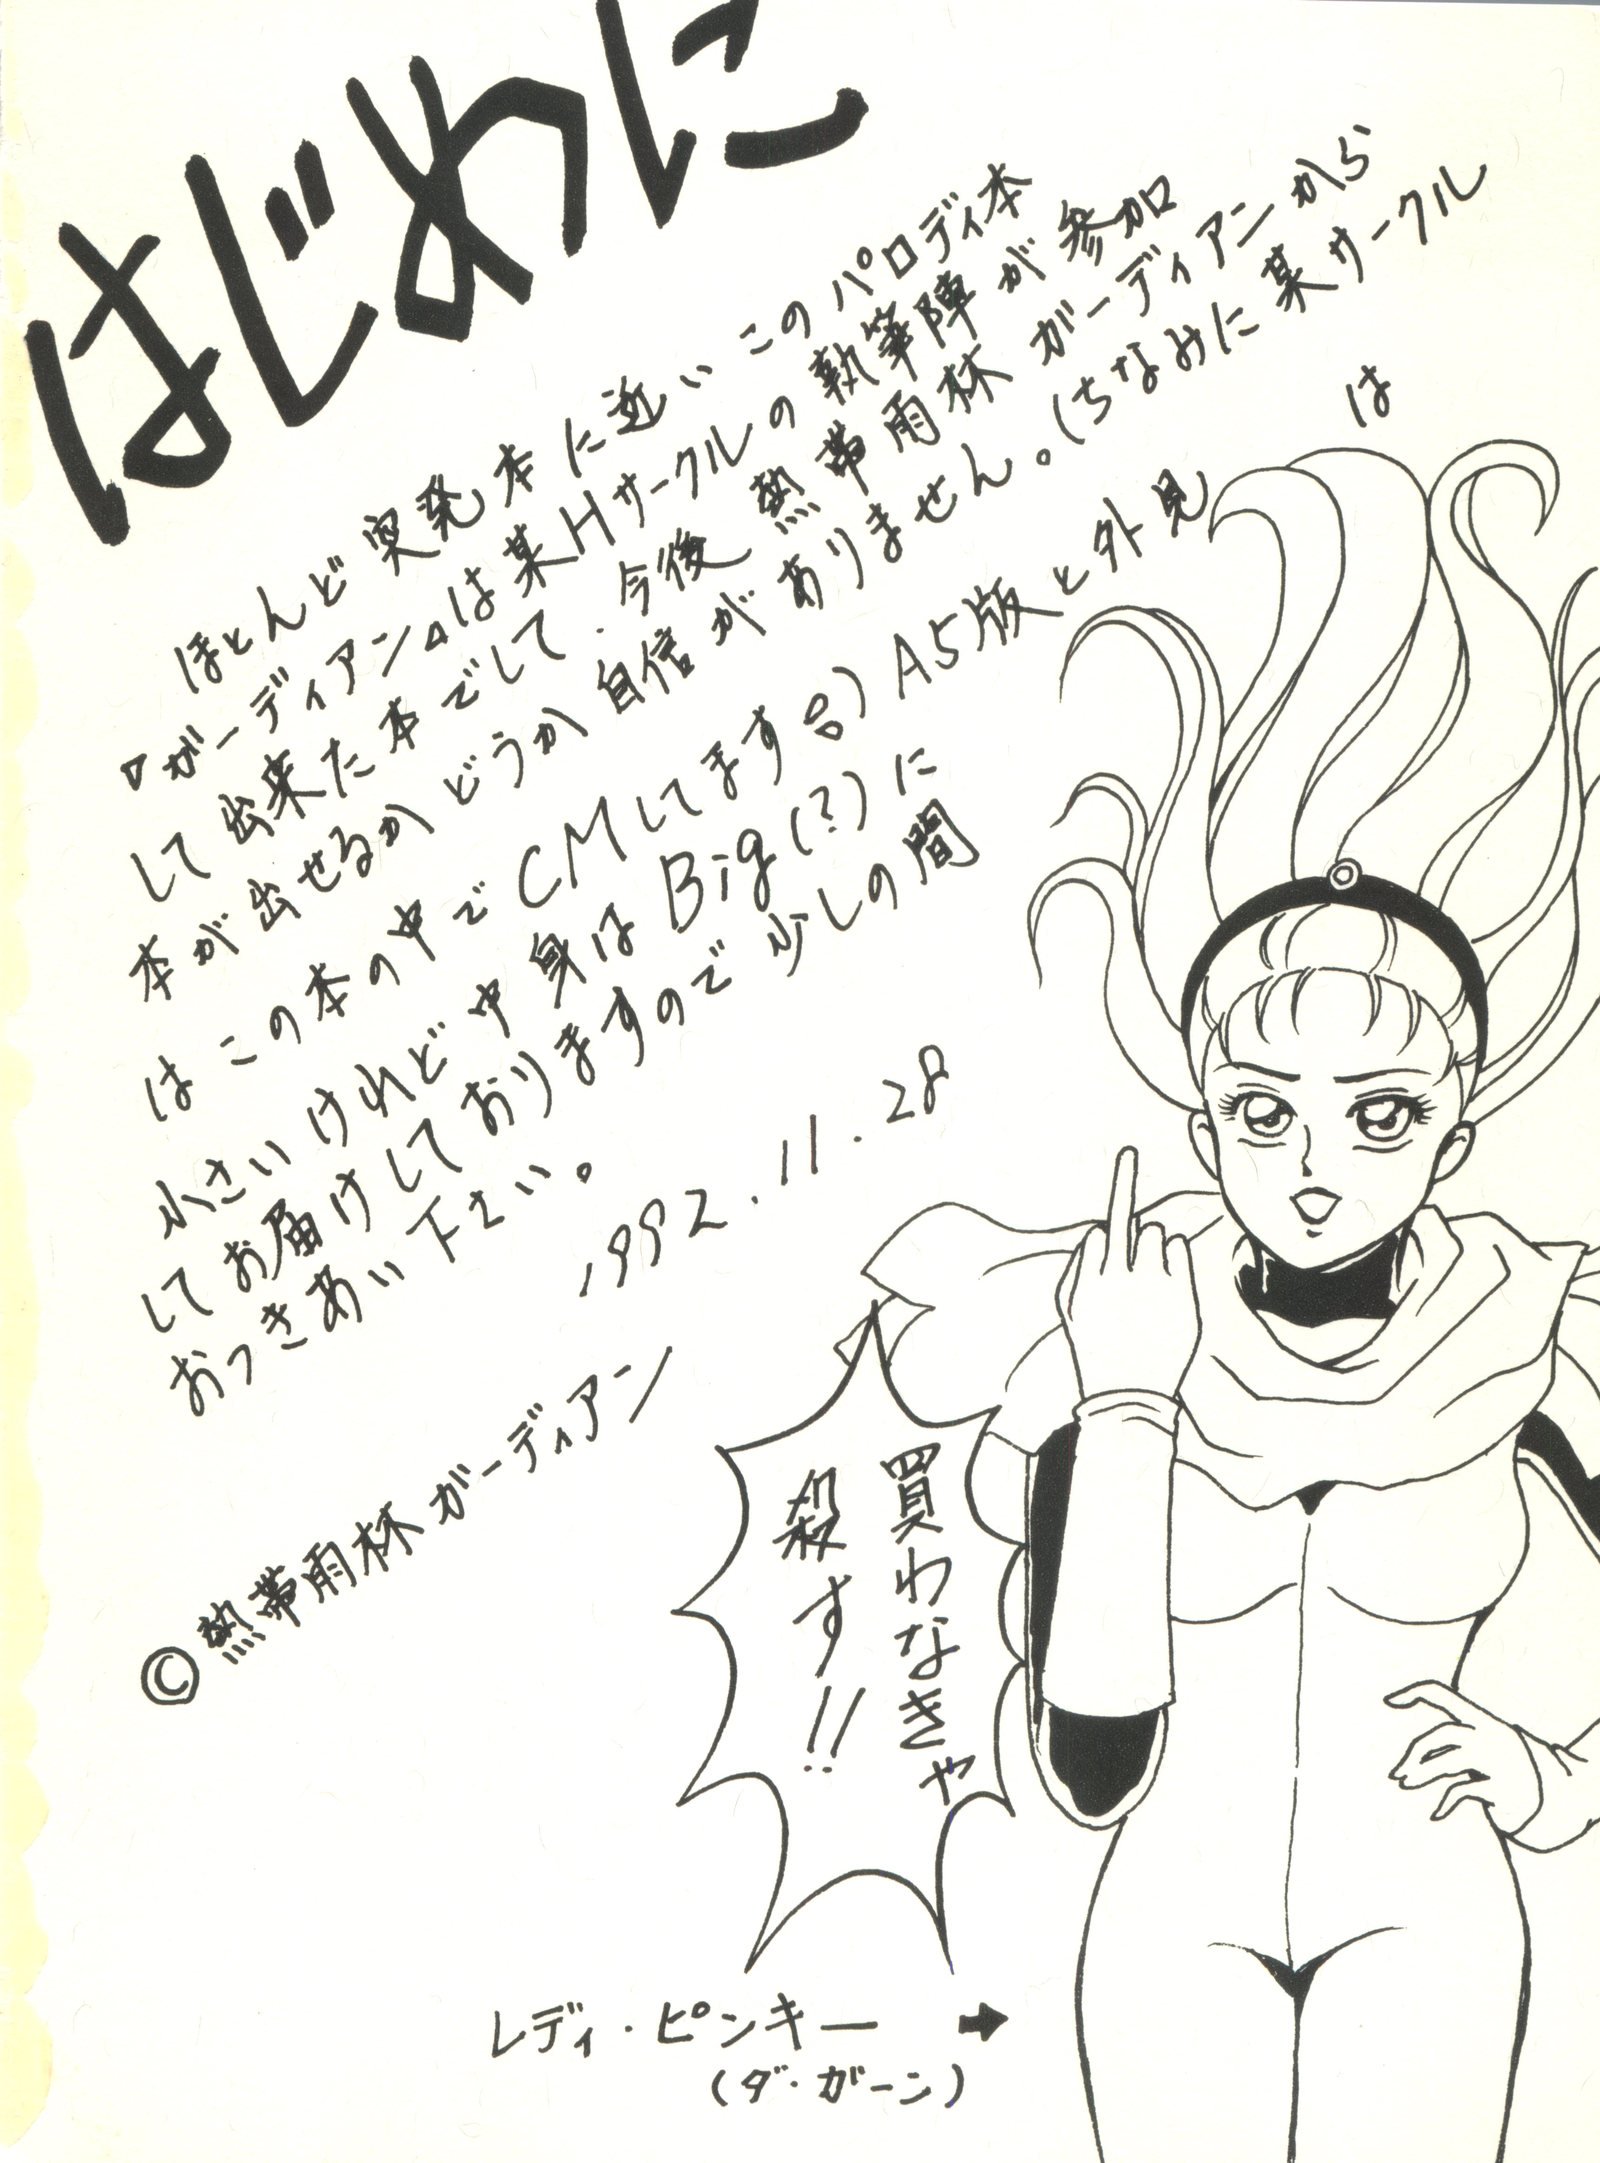 はじめに
ほとんど突発本に近いこのパロディ本
『ガーディアン』は某Hサークルの執筆陣が参加
して出来た本でして、今後熱帯雨林ガーディアンから
本が出せるかどうか自信がありません。(ちなみに某サークル
はこの本の中でCMしてますg) A5版と外見は
小さいけれど中身はBig(?)に
してお届けしておりますので少しの間
おつきあい下さい。
1992.11.28
©熱帯雨林ガーディアン
買わなきゃ
殺す!!
レディ・ピンキー →
(ダ・ガーン)